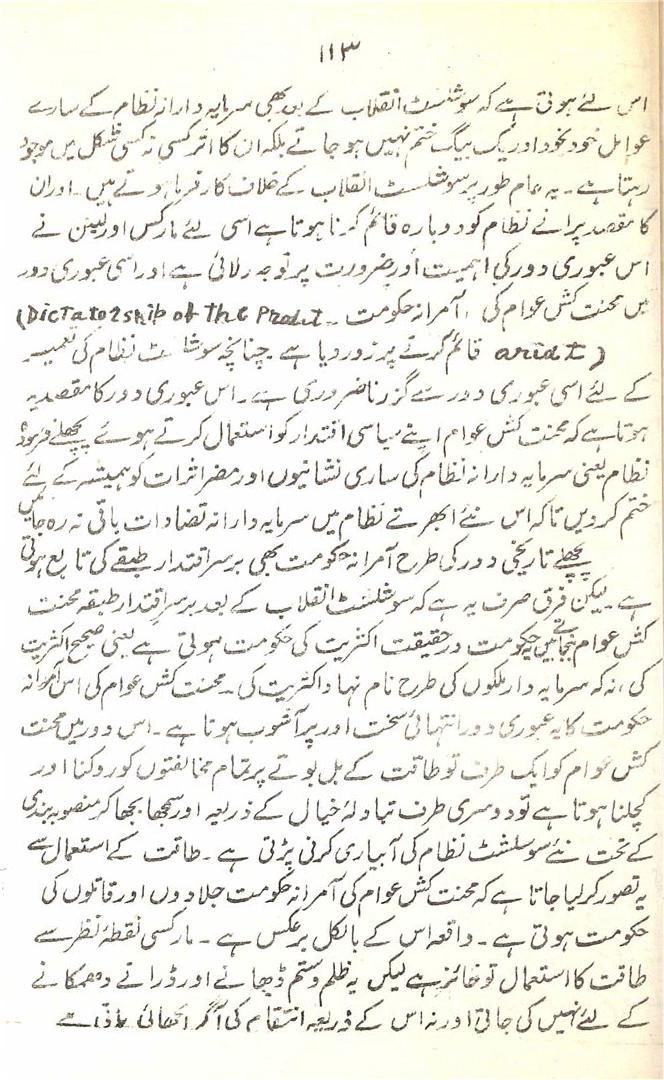 ۱۱۳
اس لئے ہوتی ہے کہ سوشلسٹ انقلاب کے بعد بھی سرمایہ دارانہ نظام کے سارے
عوامل خود بخود اور یک بیگ ختم نہیں ہو جاتے بلکہ ان کا اثر کسی نہ کسی شکل میں موجود
رہتا ہے ۔ یہ عام طور پر سوشلسٹ انقلاب کے خلاف کار فرما ہوتے ہیں ۔ اور ان
کا مقصد پرانے نظام کو دوبارہ قائم کرنا ہوتا ہے اسی لئے مارکس اور لینن نے
اس عبوری دور کی اہمیت اور ضرورت پر توجہ دلائی ہے اور اسی عبوری دور
میں محنت کش عوام کی ، آمرانہ حکومت ۔ (Dictatorship of the Prolet
ariat) قائم کرنے پر زور دیا ہے ۔ چنانچہ سوشلسٹ نظام کی تعمیر
کے لئے اسی عبوری دور سے گزرنا ضروری ہے ۔ اس عبوری دور کا مقصد یہ
ہوتا ہے کہ محنت کش عوام اپنے سیاسی اقتدار کو استعمال کرتے ہوئے پچھلے فرسودہ
نظام یعنی سرمایہ دارانہ نظام کی ساری نشانیوں اور مضر اثرات کو ہمیشہ کے لئے
ختم کر دیں تاکہ اس نئے ابھرتے نظام میں سرمایہ دارانہ تضادات باقی نہ رہ جائیں
پچھلے تاریخی دور کی طرح آمرانہ حکومت بھی بر سر اقتدار طبقے کی تابع ہوتی
ہے ۔ لیکن فرق صرف یہ ہے کہ سوشلسٹ انقلاب کے بعد بر سر اقتدار طبقہ محنت
کش عوام بنجاتے ہیں یہ حکومت درحقیقت اکثریت کی حکومت ہوتی ہے یعنی صحیح اکثریت
کی ، نہ کہ سرمایہ دار ملکوں کی طرح نام نہاد اکثریت کی ۔ محنت کش عوام کی اس آمرانہ
حکومت کا یہ عبوری دور انتہائی سخت اور پر آشوب ہوتا ہے ۔ اس دور میں محنت
کش عوام کو ایک طرف تو طاقت کے بل بوتے پر تمام مخالفتوں کو روکنا اور
کچلنا ہوتا ہے تو دوسری طرف تبادلۂ خیال کے ذریعہ اور سمجھا بجھا کر منصوبہ بندی
کے تحت نئے سوسلشٹ نظام کی آبیاری کرنی پڑتی ہے ۔ طاقت کے استعمال سے
یہ تصور کر لیا جاتا ہے کہ محنت کش عوام کی آمرانہ حکومت جلادوں اور قاتلوں کی
حکومت ہوتی ہے ۔ واقعہ اس کے بالکل برعکس ہے ۔ مارکسی نقطۂ نظر سے
طاقت کا استعمال تو جائز ہے لیکن یہ ظلم و ستم ڈھانے اور ڈرانے دھمکانے
کے لئے نہیں کی جاتی اور نہ اس کے ذریعہ انتقام کی آگ بجھائی جاتی ہے